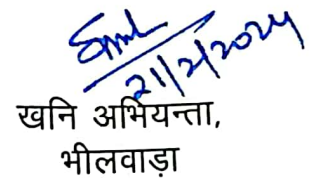 21/2/2024
खनि अभियन्ता,
भीलवाड़ा